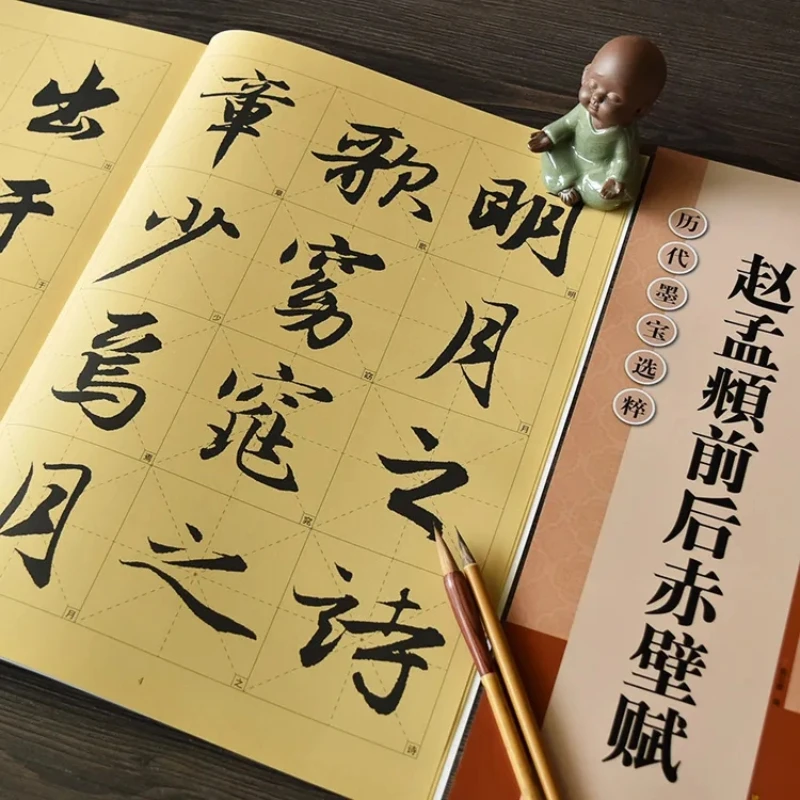 明月之詩
歌窈窕之
章少焉月
出于
4
历代墨宝选粹
赵孟頫前后赤壁赋